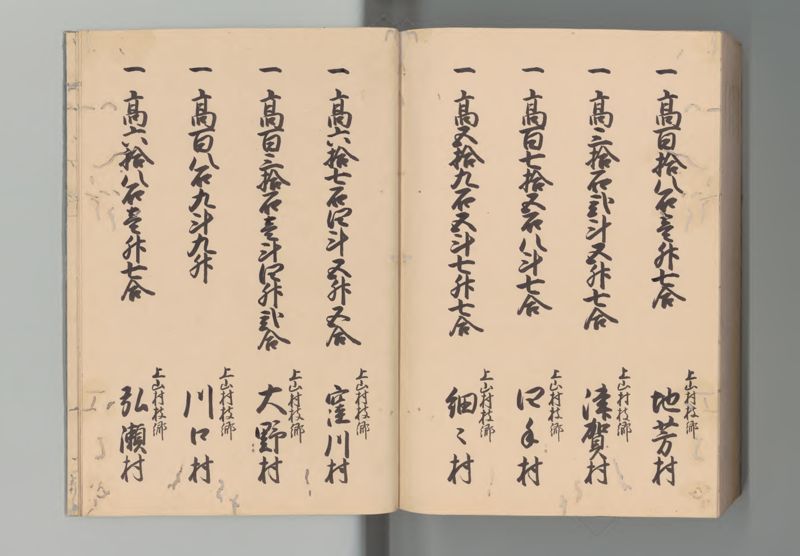 一 高百拾八石壱升七合
上山村枝郷
地芳村
一 高三拾石弐斗五升七合
上山村枝郷
津賀村
一 高百七拾五石八斗七合
上山村枝郷
口手村
一 高五拾九石五斗七升七合
上山村枝郷
細々村
一 高六拾七石四斗五升五合
上山村枝郷
窪川村
一 高百三拾石壱斗四升弐合
上山村枝郷
大野村
一 高百八石九斗九升
上山村枝郷
川口村
一 高六拾八石壱升七合
上山村枝郷
弘瀬村